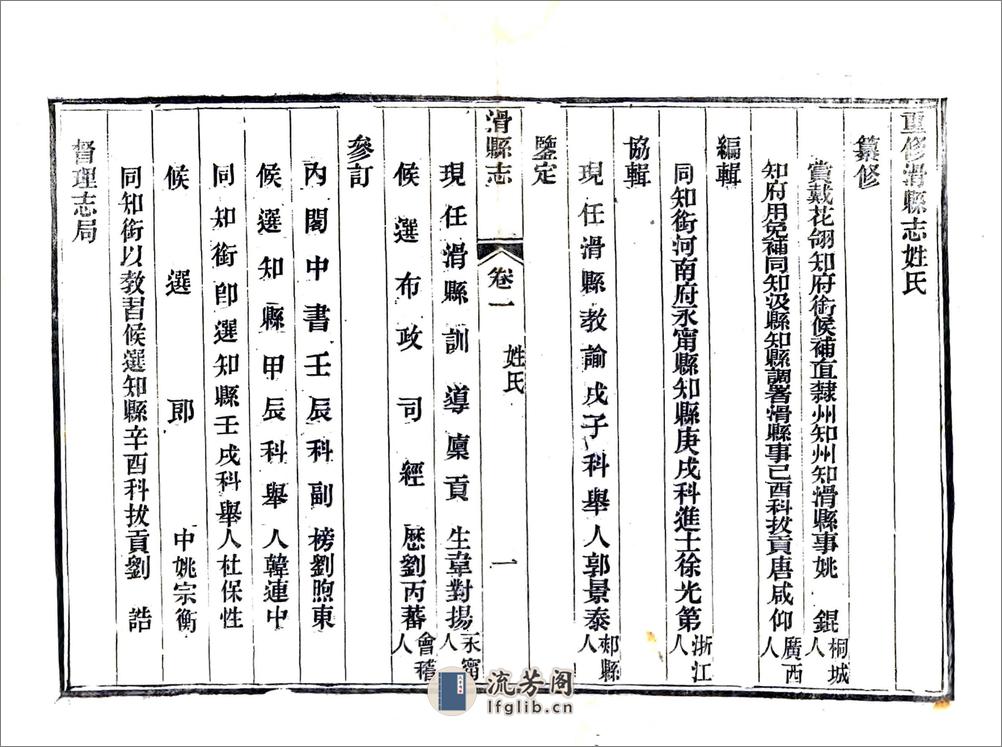 重修滑縣志姓氏
纂修
賞戴花翎知府銜候補直隸州知州知滑縣事姚 錕桐城人
知府用免補同知汲縣知縣調署滑縣事己酉科拔貢唐咸仰廣西人
編輯
同知銜河南府永甯縣知縣庚戌科進士徐光第浙江人
協輯
現任滑縣教諭戊子科舉人郭景泰郟縣人
鑒定
滑縣志 卷一 姓氏 一
現任滑縣訓導廩貢生韋對揚永甯人
候選布政司經歷劉丙蕃會稽人
參訂
內閣中書壬辰科副榜劉煦東
候選知縣甲辰科舉人韓連中
同知銜卽選知縣壬戌科舉人杜保性
候選郎中姚宗衡
同知銜以教習候選知縣辛酉科拔貢劉 誥
督理志局
流芳阁
lfglib.cn